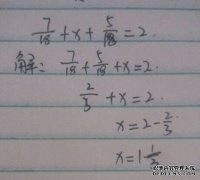 7/18 + x + 5/18 = 2.
解: 7/18 + 5/18 + x = 2.
2/3 + x = 2.
x = 2 - 2/3
x = 1 1/3